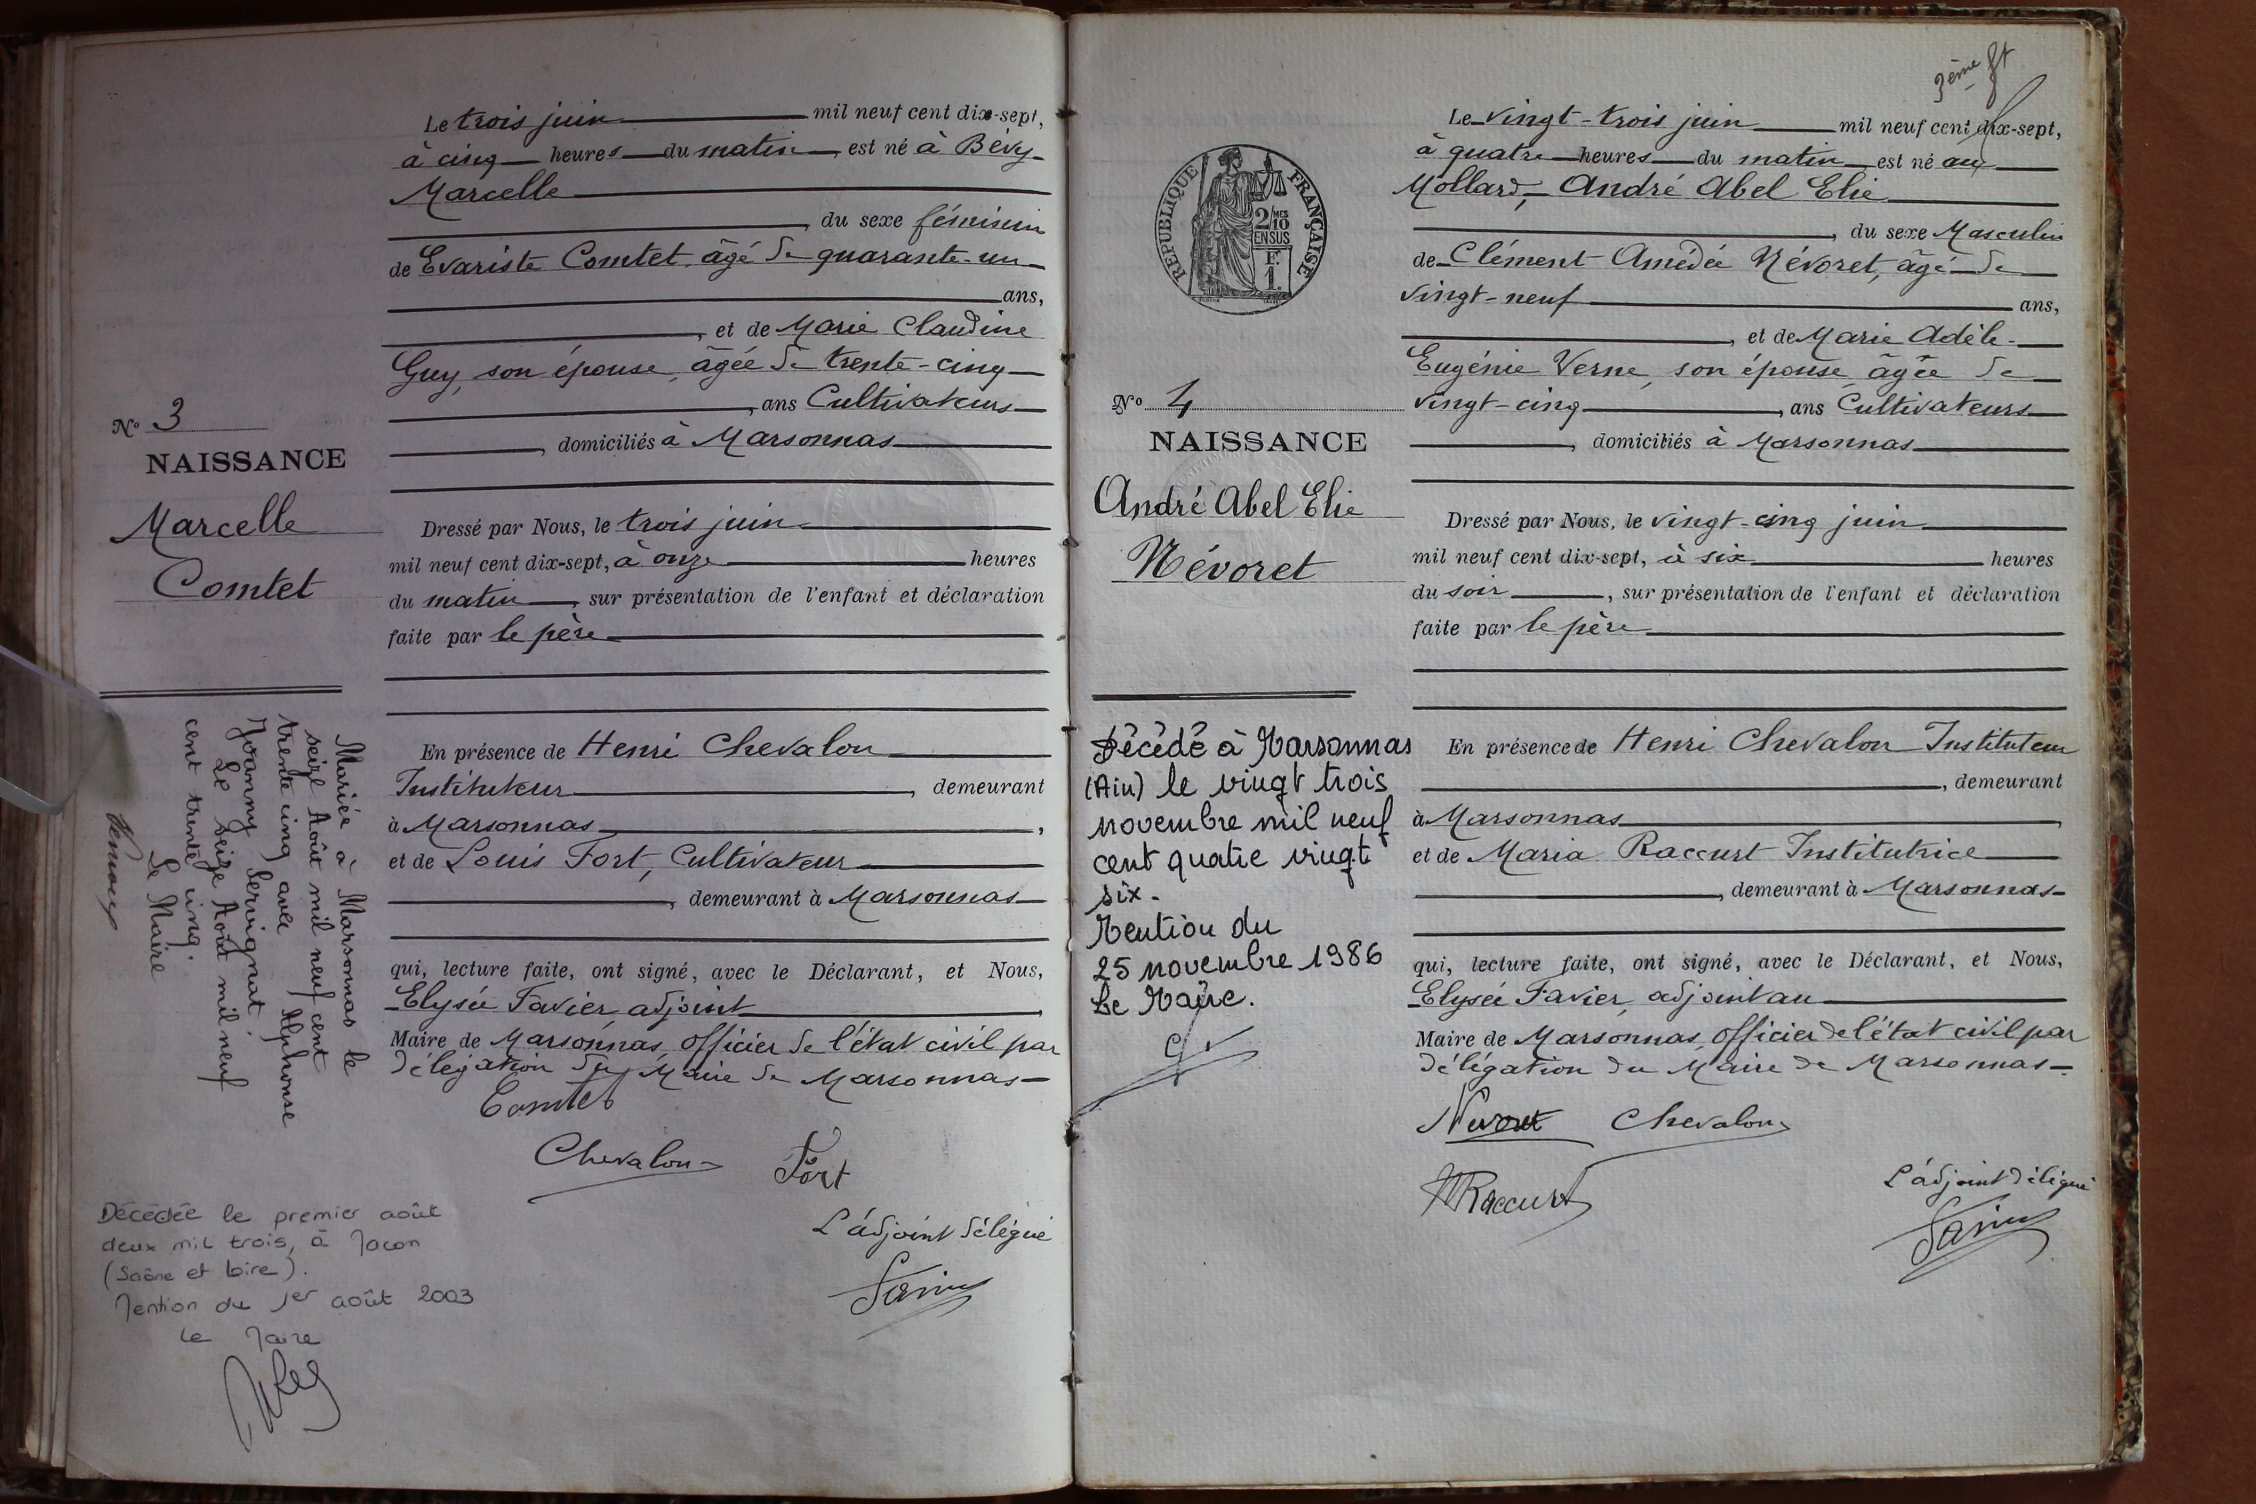 Le trois juin mil neuf cent dix-sept,
à cinq heures du matin, est né à Bévy
Marcelle
, du sexe féminin
de Evariste Comtet, âgé de quarante-un
ans,
, et de Marie Claudine
Guy, son épouse, âgée de trente-cinq
, ans Cultivateurs
, domiciliés à Marsonnas
N° 3
NAISSANCE
Marcelle
Comtet
Dressé par Nous, le trois juin
mil neuf cent dix-sept, à onze heures
du matin, sur présentation de l'enfant et déclaration
faite par le père
En présence de Henri Chevalon
Instituteur, demeurant
à Marsonnas,
et de Louis Fort, Cultivateur
, demeurant à Marsonnas
qui, lecture faite, ont signé, avec le Déclarant, et Nous,
Elysée Favier adjoint,
Maire de Marsonnas, officier de l'état civil par
délégation du Maire de Marsonnas
Comtet
Chevalon
Fort
L'adjoint délégué
Favier
Mariée à Marsonnas le
seize Août mil neuf cent
trente cinq avec Alphonse
Joanny Servignat.
Le seize Août mil neuf
cent trente cinq.
Le Maire
Décédée le premier août
deux mil trois, à Macon
(Saône et Loire).
Mention du 1er août 2003
Le Maire
3ème ft
Le vingt-trois juin mil neuf cent dix-sept,
à quatre heures du matin est né au
Mollard, André Abel Elie
, du sexe Masculin
de Clément Amédée Névoret, âgé de
vingt-neuf ans,
, et de Marie Adèle
Eugénie Verne, son épouse, âgée de
vingt-cinq, ans Cultivateurs
, domiciliés à Marsonnas
RÉPUBLIQUE FRANÇAISE
2/10
MES
EN SUS
F.
1.
N° 4
NAISSANCE
André Abel Elie
Névoret
Dressé par Nous, le vingt-cinq juin
mil neuf cent dix-sept, à six heures
du soir, sur présentation de l'enfant et déclaration
faite par le père
En présence de Henri Chevalon Instituteur
, demeurant
à Marsonnas,
et de Maria Raccurt Institutrice
, demeurant à Marsonnas
qui, lecture faite, ont signé, avec le Déclarant, et Nous,
Elysée Favier, adjoint au
Maire de Marsonnas, officier de l'état civil par
délégation du Maire de Marsonnas
Névoret Chevalon
MRaccurt
L'adjoint délégué
Favier
Décédé à Marsonnas
(Ain) le vingt trois
novembre mil neuf
cent quatre vingt
six.
Mention du
25 novembre 1986
Le Maire.